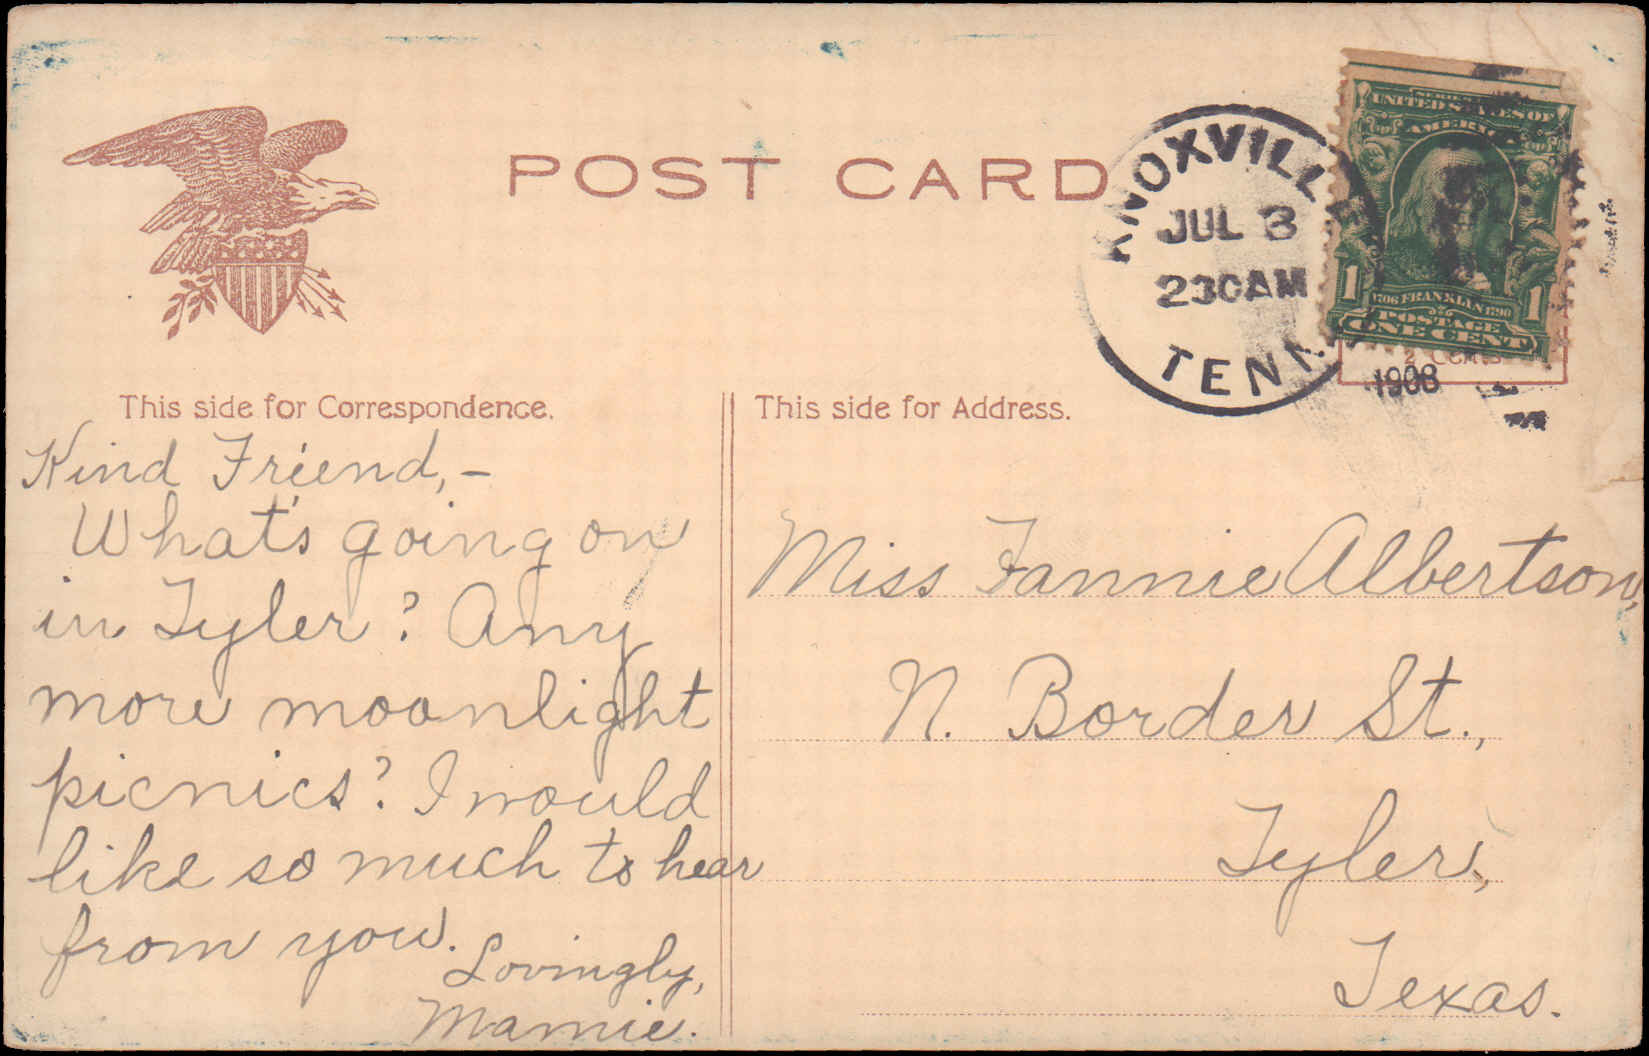 POST CARD
KNOXVILLE
JUL 3
230AM
TENN
1908
SERIES
UNITED STATES OF
AMERICA
1706 FRANKLIN 1790
1 1
POSTAGE
ONE CENT
2 CENTS
This side for Correspondence.
Kind Friend,-
What's going on
in Tyler? Any
more moonlight
picnics? I would
like so much to hear
from you.
Lovingly,
Mamie.
This side for Address.
Miss Fannie Albertson,
N. Border St.,
Tyler,
Texas.